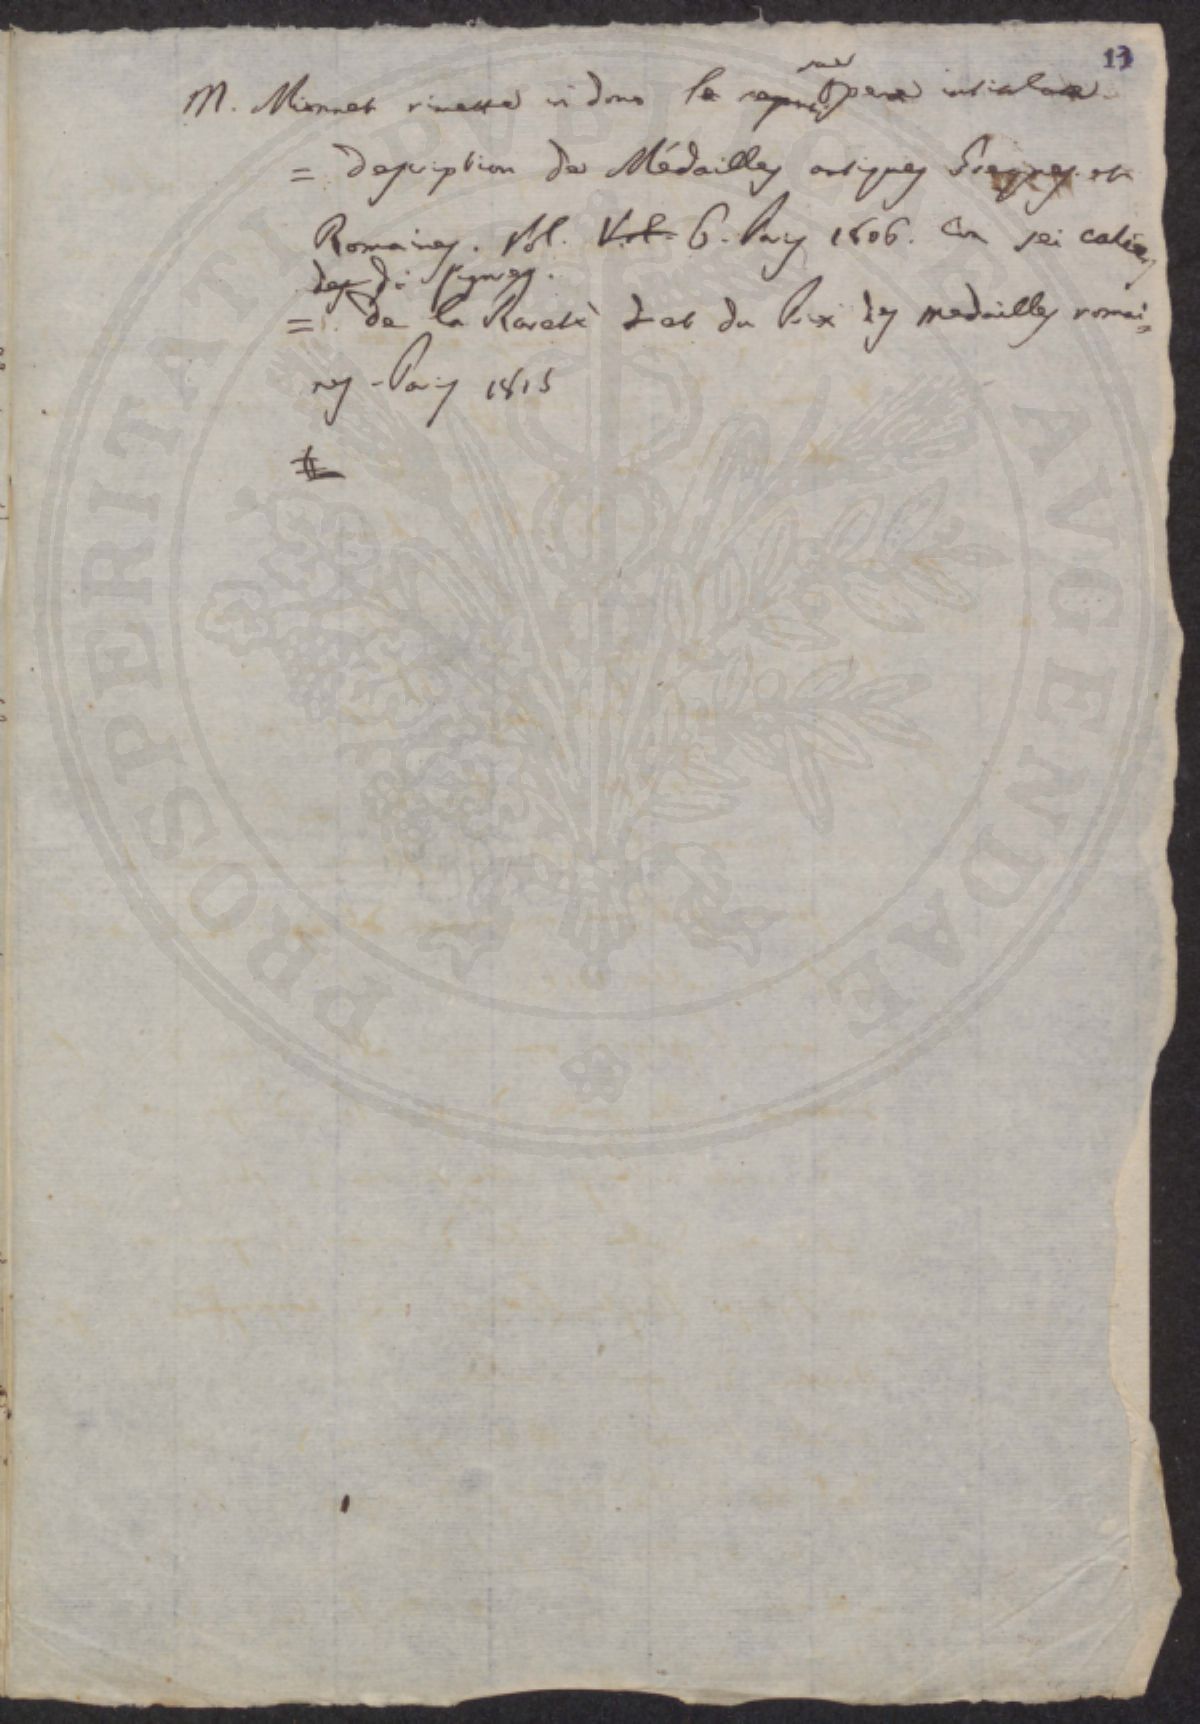 13
sue
M. Mionnet rimette in dono le seguenti Opere intitolate
= Description de Médailles antiques Grecques et
Romaines. Vol. Vol. 6. Paris 1806. Con sei cahier
di figures.
= de la Rareté et du Prix des medailles romai=
nes - Paris 1815
PROSPERITATI PVBLICAE AVGENDAE